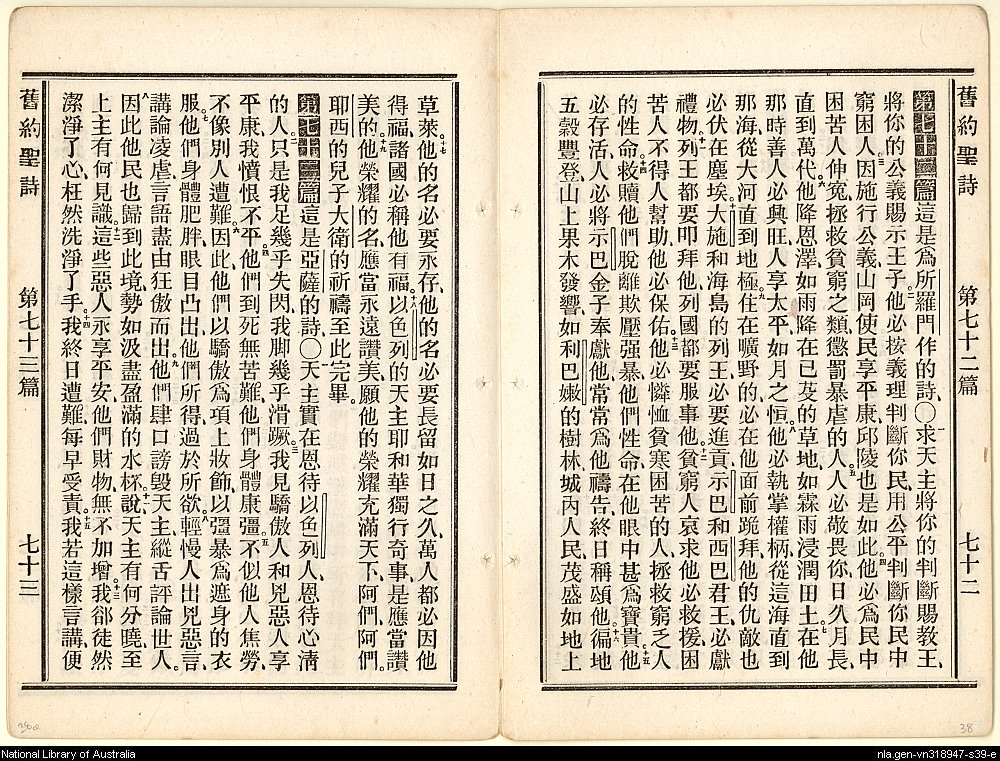 舊約聖詩 第七十二篇 七十二
第七十二篇這是爲所羅門作的詩、〇求天主將你的判斷賜教王、
將你的公義賜示王子、他必按義理判斷你民、用公平判斷你民中
窮困人、因施行公義、山岡使民享平康、邱陵也是如此、他必爲民中
困苦人伸寃、拯救貧窮之類、懲罰暴虐的人、人必敬畏你、日久月長、
直到萬代、他降恩澤、如雨降在已芟的草地、如霖雨浸潤田土、在他
那時善人必興旺、人享太平、如月之恒、他必執掌權柄、從這海直到
那海、從大河直到地極、住在曠野的、必在他面前跪拜、他的仇敵也
必伏在塵埃、大施和海島的列王、必要進貢、示巴和西巴君王、必獻
禮物、列王都要叩拜他、列國都要服事他、貧窮人哀求、他必救援、困
苦人不得人幫助、他必保佑、他必憐恤貧寒困苦的人、拯救窮乏人
的性命、救贖他們脫離欺壓强暴、他們性命、在他眼中甚爲寶貴、他
必存活、人必將示巴金子奉獻他、常常爲他禱告、終日稱頌他、徧地
五穀豐登、山上果木發響、如利巴嫩的樹林、城內人民、茂盛如地上
草萊、他的名必要永存、他的名必要長留如日之久、萬人都必因他
得福、諸國必稱他有福、以色列的天主耶和華獨行奇事、是應當讚
美的、他榮耀的名、應當永遠讚美、願他的榮耀充滿天下、阿們、阿們。
耶西的兒子大衛的祈禱至此完畢
第七十三篇這是亞薩的詩、〇天主實在恩待以色列人、恩待心淸
的人、只是我足幾乎失閃、我脚幾乎滑蹶、我見驕傲人和兇惡人享
平康、我憤恨不平、他們到死無苦難、他們身體康彊、不似他人焦勞、
不像別人遭難、因此他們以驕傲爲項上妝飾、以彊暴爲遮身的衣
服、他們身體肥胖、眼目凸出、他們所得過於所欲、輕慢人出兇惡言
講論凌虐、言語盡由狂傲而出、他們肆口謗毁天主、縱舌評論世人。
因此他民也歸到此境、勢如汲盡盈滿的水杯、說天主有何分曉、至
上主有何見識、這些惡人、永享平安、他們財物、無不加增、我卻徒然
潔淨了心、枉然洗淨了手、我終日遭難、每早受責、我若這樣言講、便
舊約聖詩 第七十三篇 七十三
38
National Library of Australia
nla.gen-vn318947-s39-e